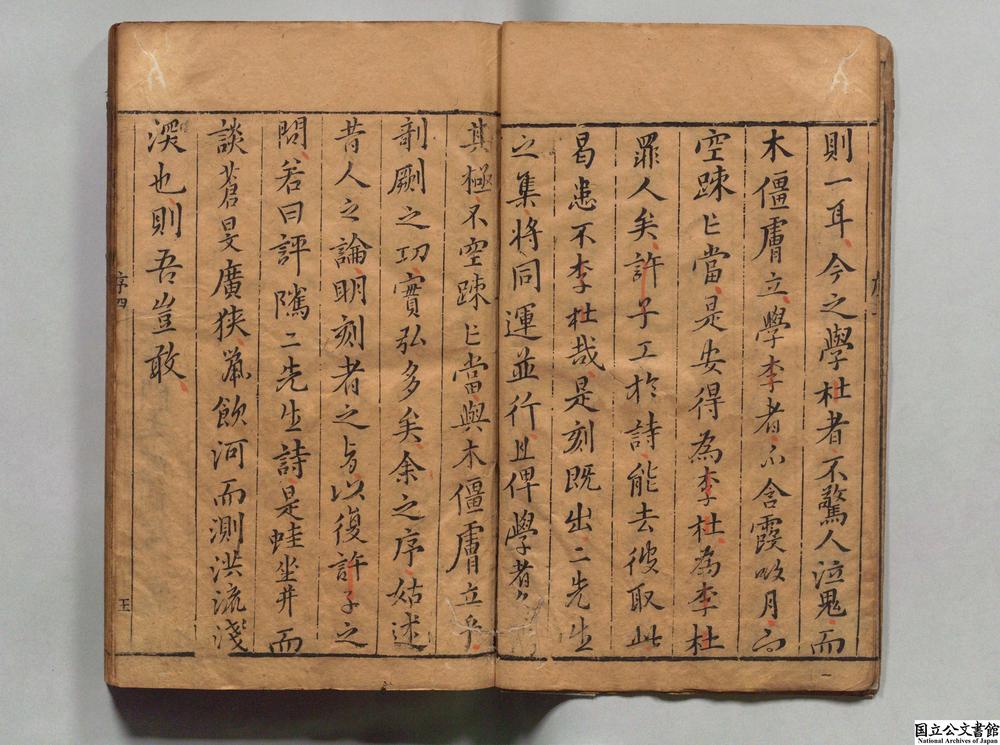 則一耳今之學杜者不驚人泣鬼而
木僵膚立學李者不含霞吸月而
空踈亡當是安得為李杜為李杜
罪人矣許子工於詩能去彼取此
曷患不李杜哉是刻既出二先生
之集將同運並行且俾學者
其極不空踈亡當與木僵膚立乎
剞劂之功實弘多矣余之序姑述
昔人之論明刻者之与以復許子之
問若曰評隲二先生詩是蛙坐井而
談蒼旻廣狹鼷飲河而測洪流淺
深也則吾豈敢
序四
五
国立公文書館
National Archives of Japan